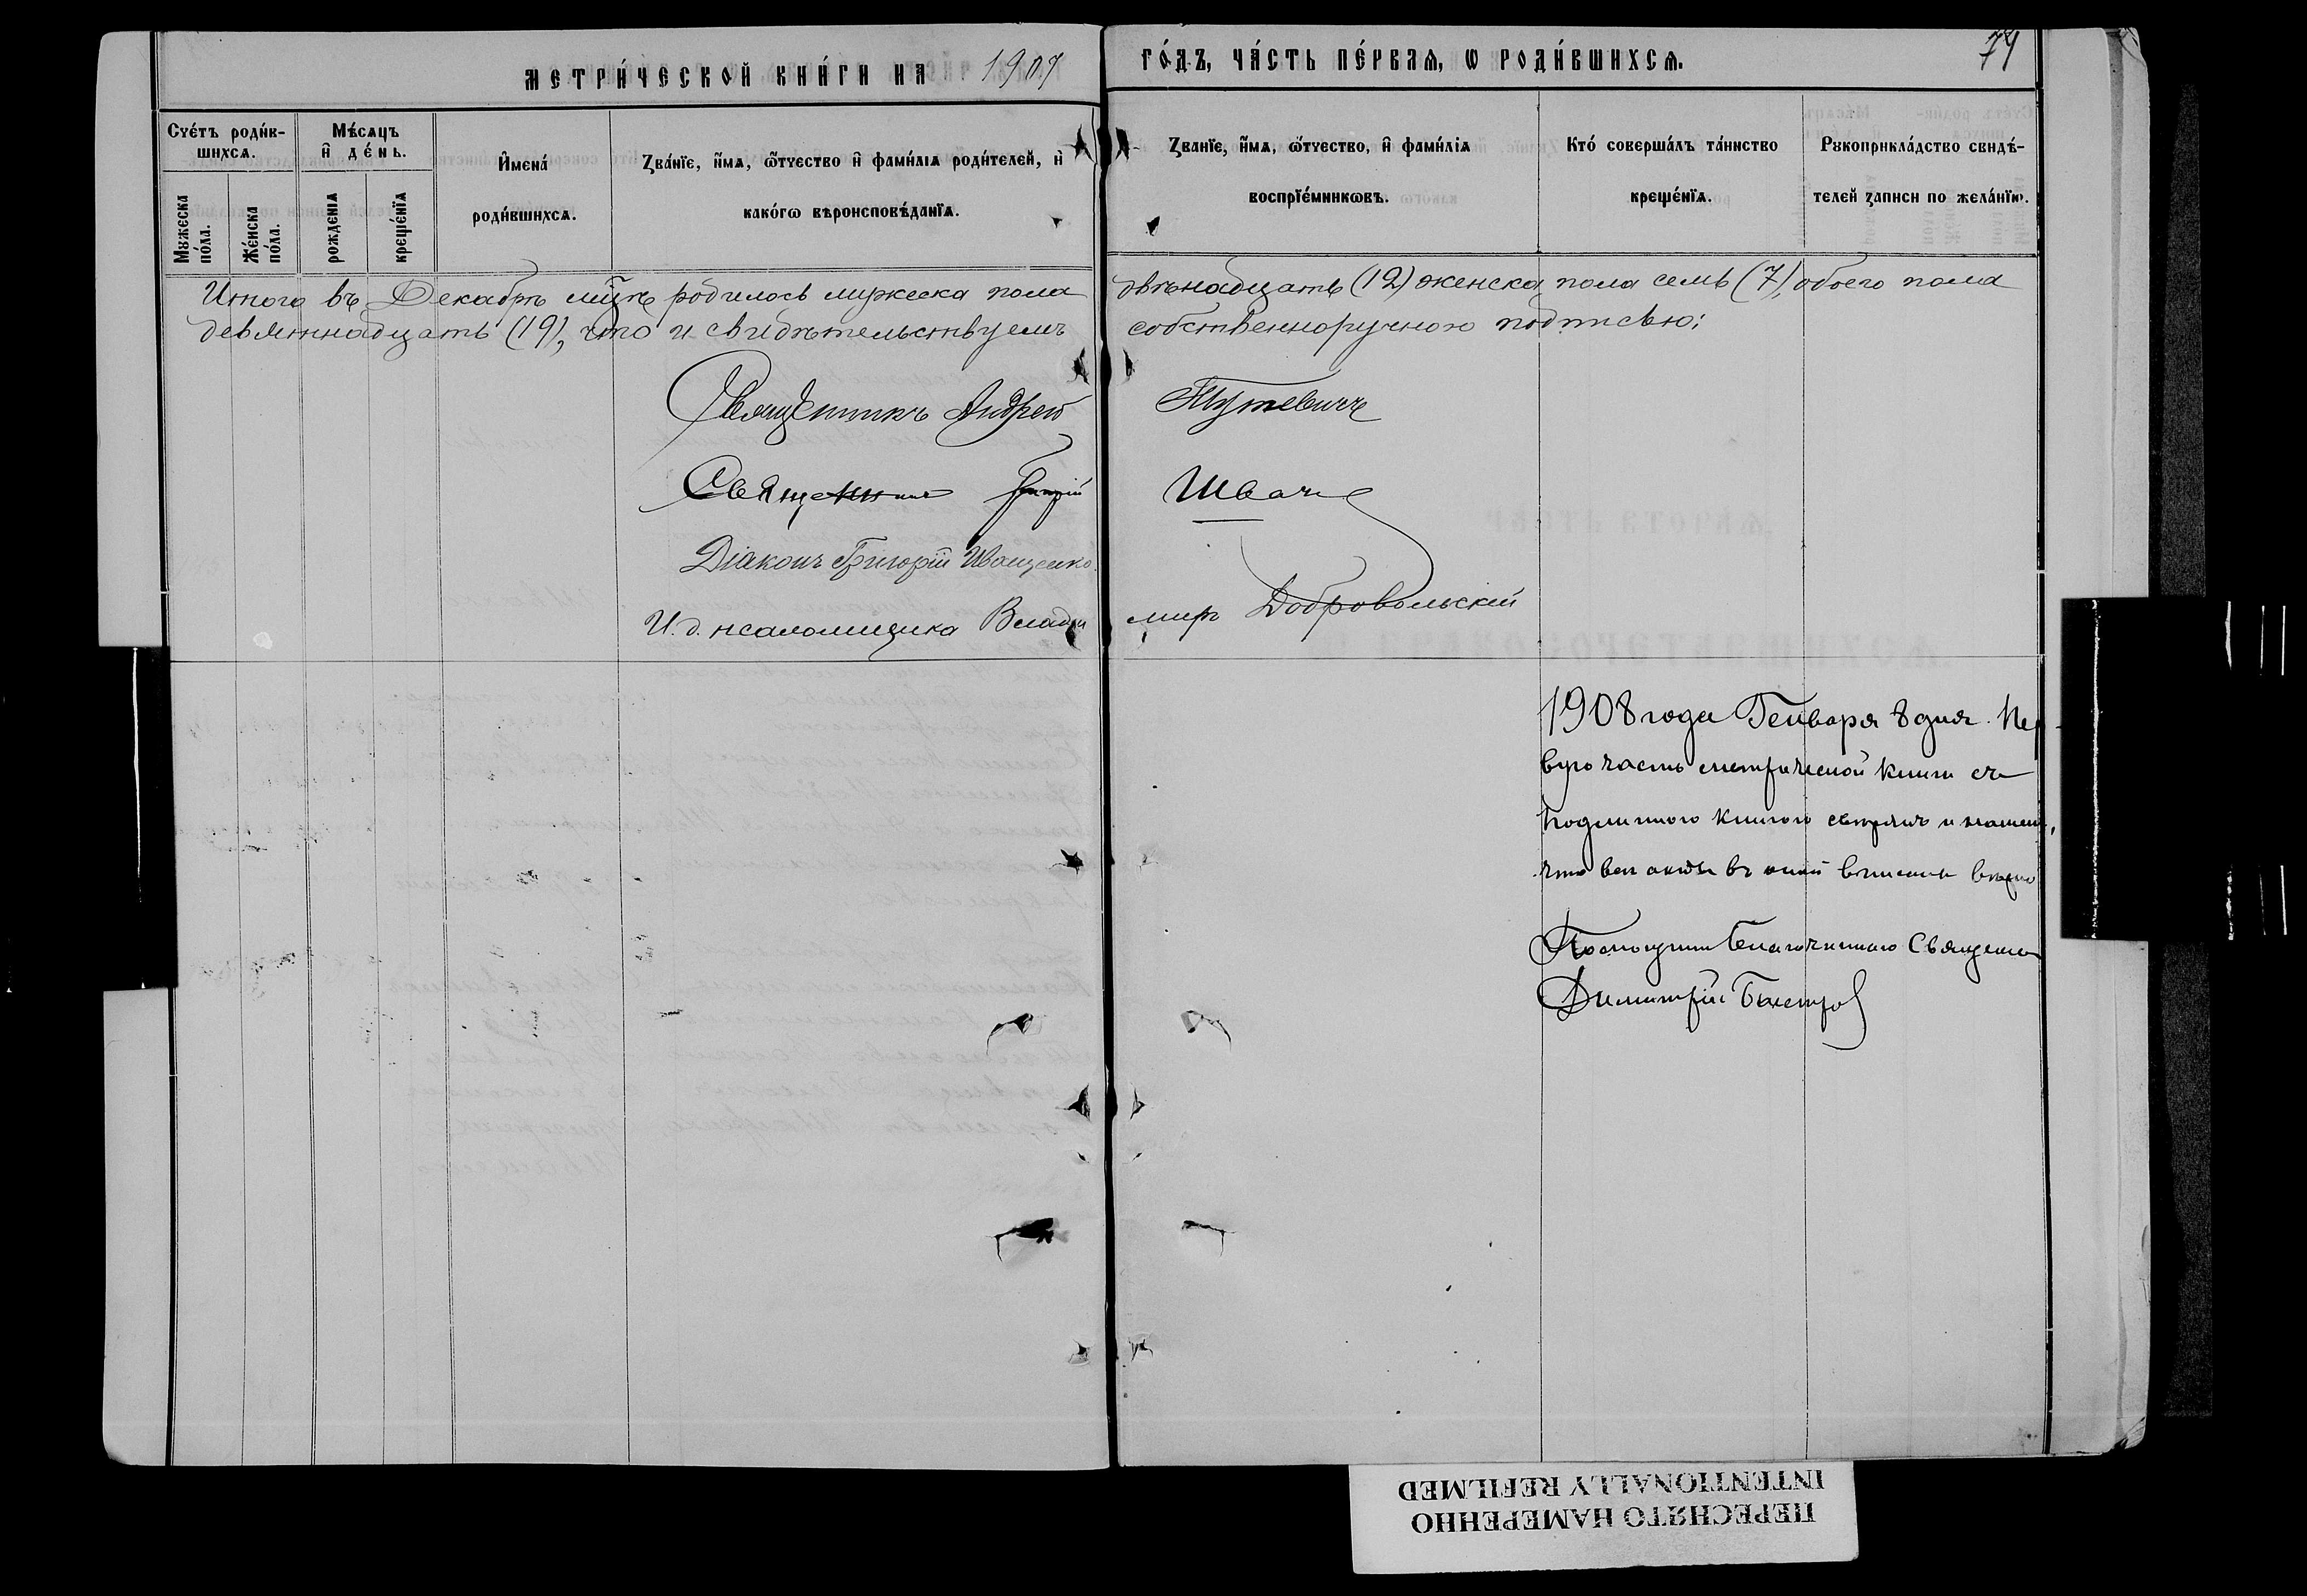 МЕТРИ́ЧЕСКОЙ КНИ́ГИ НА 1907 ГО́ДЪ, ЧА́СТЬ ПЕ́РВАѦ, Ѡ РОДИ́ВШИХСѦ.
74
Счéтъ роди́в-
шихсѧ.
Мужеска
по́ла.
Же́нска
по́ла.
Мѣ́сѧцъ
и҆ де́нь.
рожденїѧ
креще́нїѧ
И҆мена́
роди́вшихсѧ.
Зва́нїе, и҆́мѧ, ѻ҆́тчество и҆ фами́лїѧ роди́телей, и҆
како́гѡ вѣроисповѣ́данїѧ.
Званїе, и҆́мѧ, ѻ҆́тчество, и҆ фами́лїѧ
воспрїе́мникѡвъ.
Кто́ соверша́лъ та́инство
креще́нїѧ.
Рꙋкоприкла́дство свидѣ́-
телей записи по жела́нїю.
Итого въ Декабрѣ мцѣ родилось мужеска пола двѣнадцать (12) женска пола семь (7), обоего пола
девятнадцать (19), что и свидѣтельствуемъ собственноручною подписью:
Священникъ Андрей Тутевичъ
Священникъ Григорій Швачъ
Діаконъ Григорій Иващенко.
И. д. псаломщика Владимиръ Добровольскій
1908 года Генваря 8 дня. Пер-
вую часть метрической книги съ
подлинною книгою свѣрялъ и нашелъ,
что всѣ акты въ оной вписаны вѣрно
Помощникъ Благочиннаго Священникъ
Димитрій Быстровъ
ПЕРЕСНЯТО НАМЕРЕННО
INTENTIONALLY REFILMED